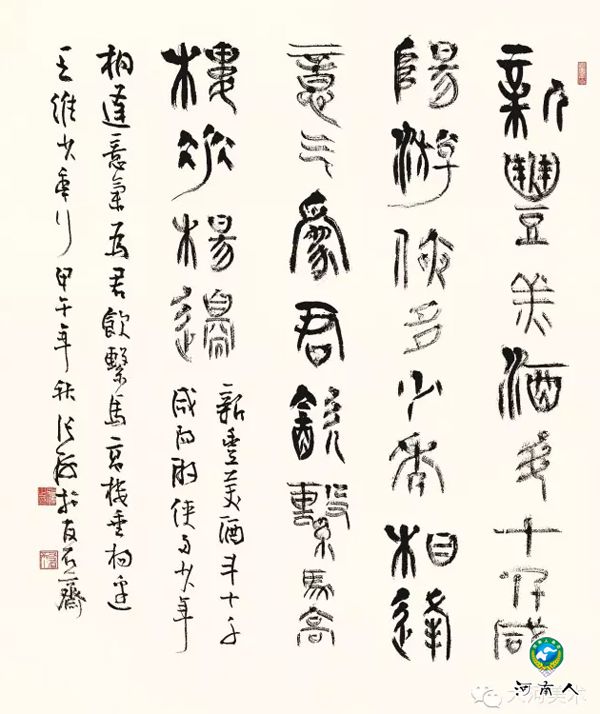 新豐美酒斗十仟咸
陽游俠多少年相逢
意气為君飲繫馬高
樓垂楊邊
新豐美酒斗十千
咸陽游俠多少年
相逢意氣為君飲繫馬高樓垂柳邊
王維少年行 甲午年秋 張海於石齋
河南人
大河美术